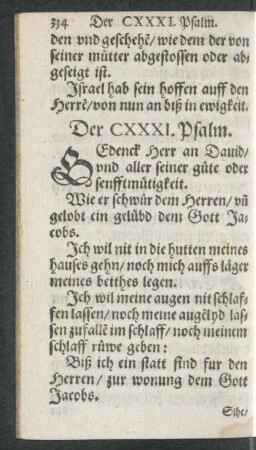 334 Der CXXXI. Psalm.
den vnd geschehẽ/ wie dem der von
seiner mütter abgestossen oder ab-
geseigt ist.
Israel hab sein hoffen auff den
Herrẽ/ von nun an biß in ewigkeit.
Der CXXXI. Psalm.
GEdenck Herr an Dauid/
vnd aller seiner güte oder
senfftmütigkeit.
Wie er schwůr dem Herren/ vñ
gelobt ein gelübd dem Gott Ja-
cobs.
Ich wil nit in die hutten meines
hauses gehn/ noch mich auffs läger
meines betthes legen.
Ich wil meine augen nit schlaf-
fen lassen/ noch meine augẽlyd las-
sen zufallẽ im schlaff/ noch meinem
schlaff růwe geben:
Biß ich ein statt find fur den
Herren/ zur wonung dem Gott
Jacobs.
Sihe/